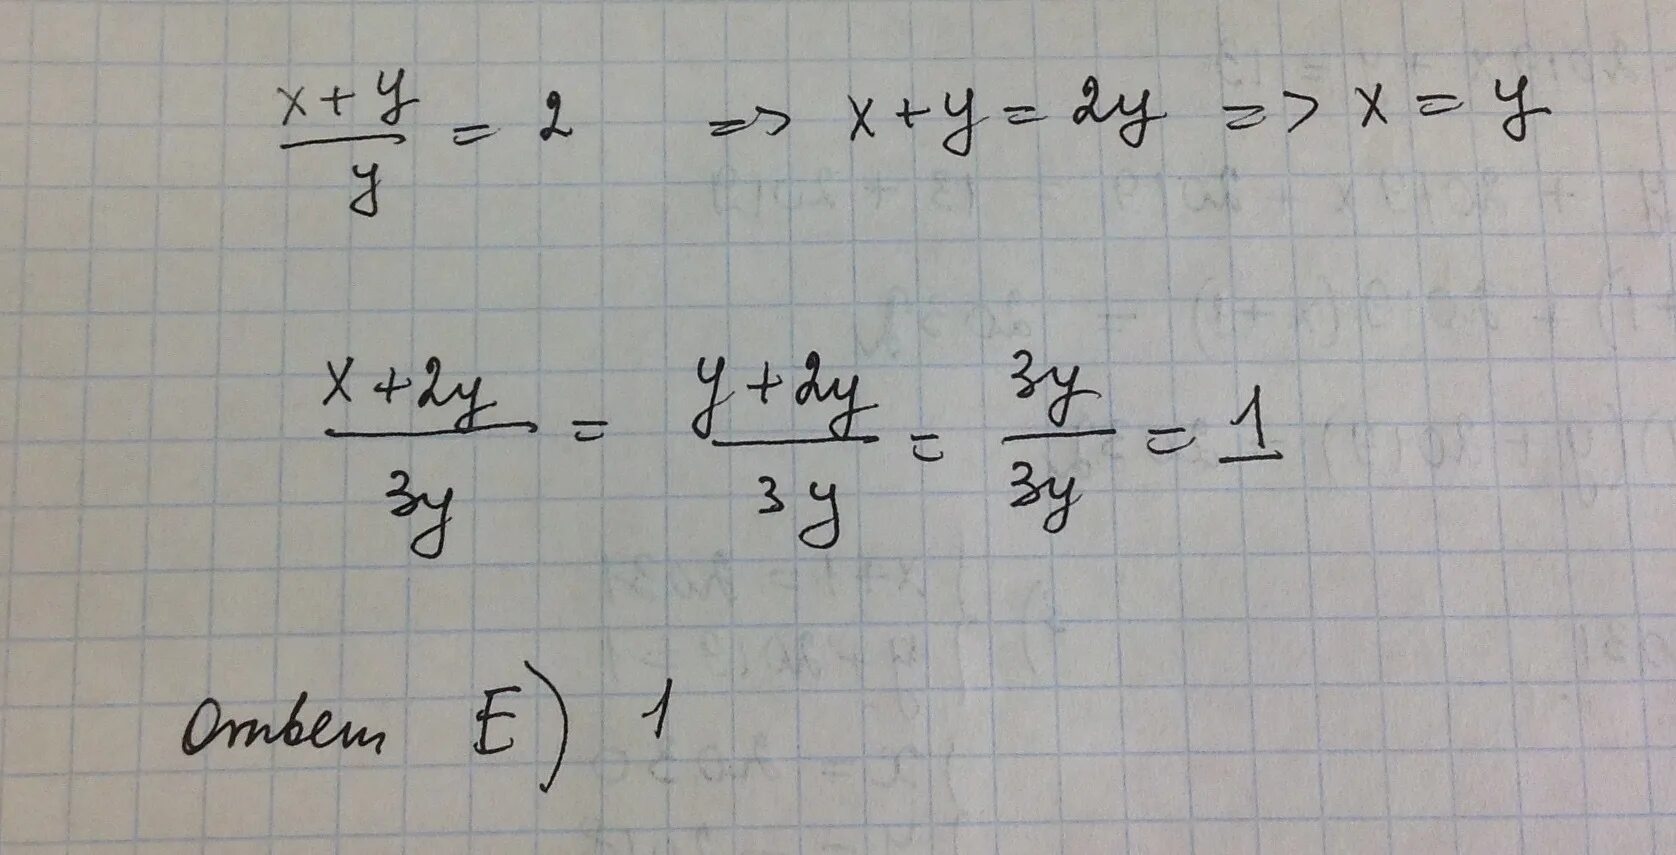 x+y/y = 2 => x+y = 2y => x = y
x+2y/3y = y+2y/3y = 3y/3y = 1
Ответ E) 1